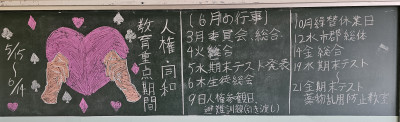 5/15
～
6/14
人権・同和
教育重点期間
(6月の行事)
3月 委員会、総合
4火 総合
5水 期末テスト発表
6木 生徒総会
9日 人権参観日、
避難訓練(引き渡し)
10月 繰替休業日
12水 市郡総体
14金 総合
19水 期末テスト
～
21金 期末テスト
薬物乱用防止教室